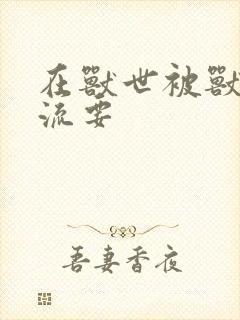 在獸世被獸
流要
吾妻香夜